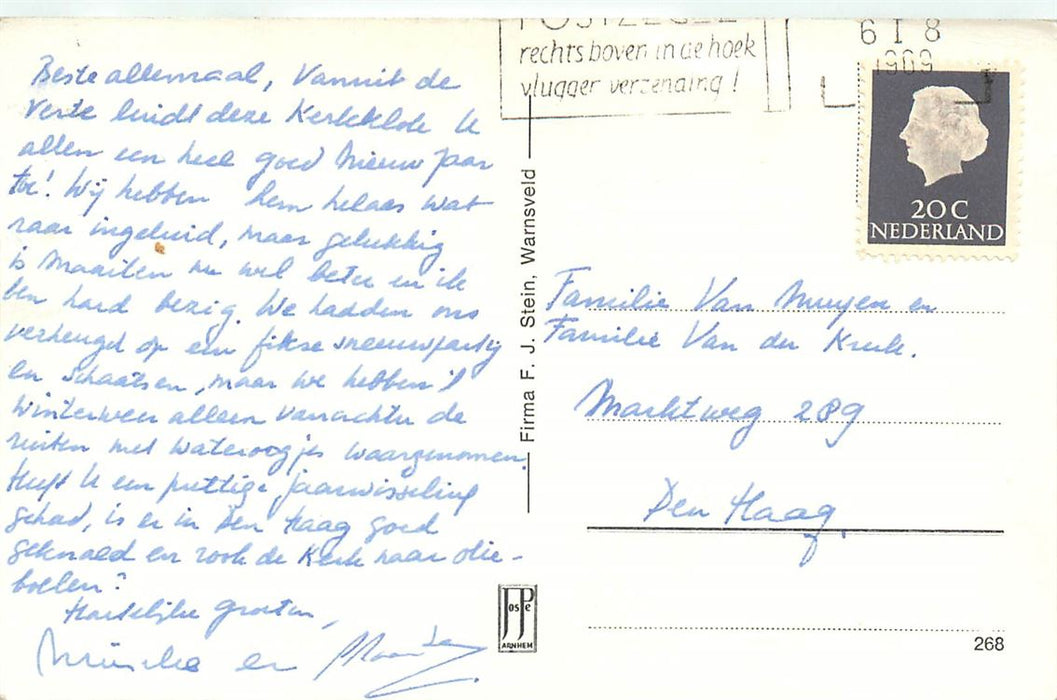 Beste allemaal, Vanuit de
verte luidt deze Kerkklok U
allen een heel goed Nieuwjaar
toe! Wij hebben hem helaas wat
raar ingeluid, maar gelukkig
is Maarten nu wel beter en ik
ben hard bezig. We hadden ons
verheugd op een fikse sneeuwpartij
en schaatsen, maar we hebben 't
winterweer alleen vanachter de
ruiten met wateroogjes waargenomen.
Heeft U een prettige jaarwisseling
gehad, is er in Den Haag goed
geknald en rook de Kerk naar olie-
bollen?
Hartelijke groeten,
en Maarten
POSTZEGEL
rechts boven in de hoek
vlugger verzending!
6 I 8
1969
20 C
NEDERLAND
Firma F. J. Stein, Warnsveld
Familie Van Muyen en
Familie Van der Kerk.
Marktweg 289
Den Haag.
JosPé
ARNHEM
268